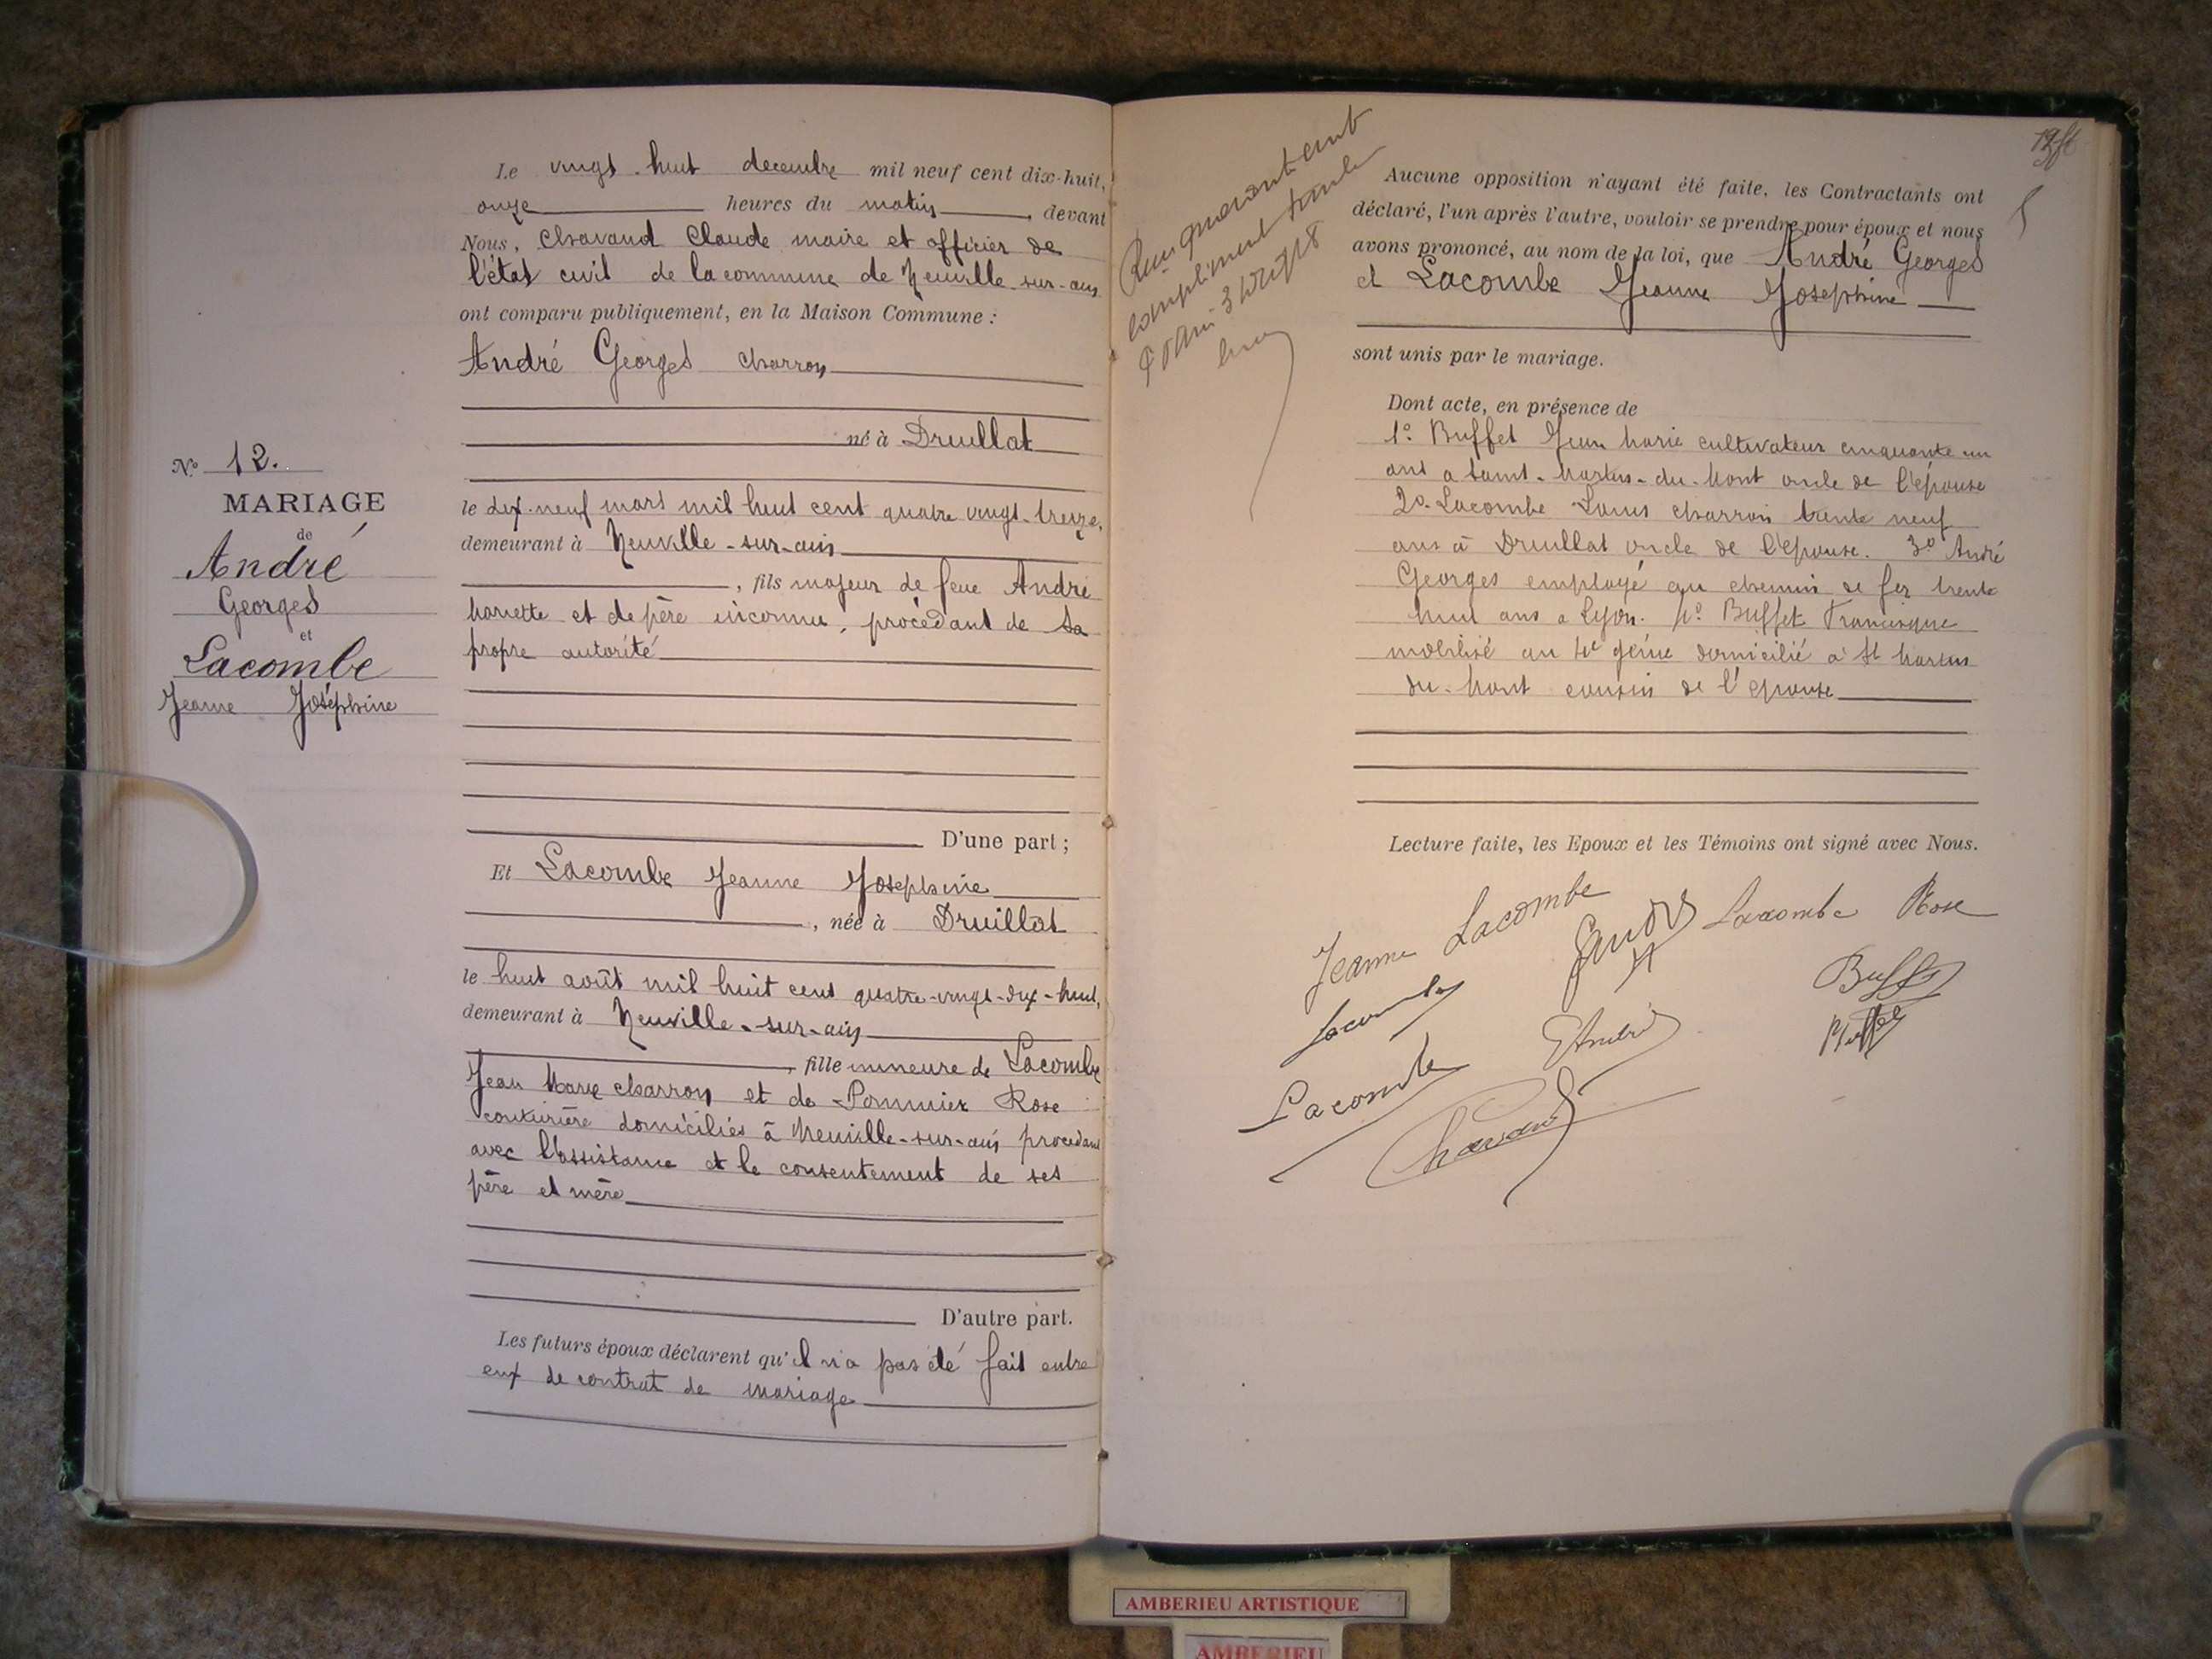 Le vingt-huit decembre mil neuf cent dix-huit,
onze heures du matin, devant
Nous, Chavand Claude maire et officier de
l'état civil de la commune de Neuville-sur-ain
ont comparu publiquement, en la Maison Commune :
André Georges charron
né à Druillat
le dix-neuf mars mil huit cent quatre vingt-treize,
demeurant à Neuville-sur-ain
, fils majeur de feue André
Mariette et de père inconnu, procédant de sa
propre autorité
D'une part ;
Nº 12.
MARIAGE
de
André
Georges
et
Lacombe
Jeanne Joséphine
Et Lacombe Jeanne Josephine
, née à Druillat
le huit août mil huit cent quatre-vingt-dix-huit,
demeurant à Neuville-sur-ain
, fille mineure de Lacombe
Jean Marie charron et de Pommier Rose
couturière domiciliés à Neuville-sur-ain procédant
avec l'assistance et le consentement de ses
père et mère
D'autre part.
Les futurs époux déclarent qu'il n'a pas été fait entre
eux de contrat de mariage
Aucune opposition n'ayant été faite, les Contractants ont
déclaré, l'un après l'autre, vouloir se prendre pour époux et nous
avons prononcé, au nom de la loi, que André Georges
et Lacombe Jeanne Josephine
sont unis par le mariage.
Dont acte, en présence de
1º Buffet Jean Marie cultivateur cinquante un
ans a Saint-Martin-du-Mont oncle de l'épouse
2º Lacombe Louis charron trente neuf
ans à Druillat oncle de l'épouse. 3º André
Georges employé au chemin de fer trente
huit ans a Lyon. 4º Buffet Francisque
mobilisé au 4e génie domicilié à St Martin
du-Mont cousin de l'épouse
Lecture faite, les Epoux et les Témoins ont signé avec Nous.
Jeanne Lacombe
Lacombe Rose
Lacombe
Buffet
André
Buffet
Lacombe
Chavand
AMBERIEU ARTISTIQUE
AMBERIEU